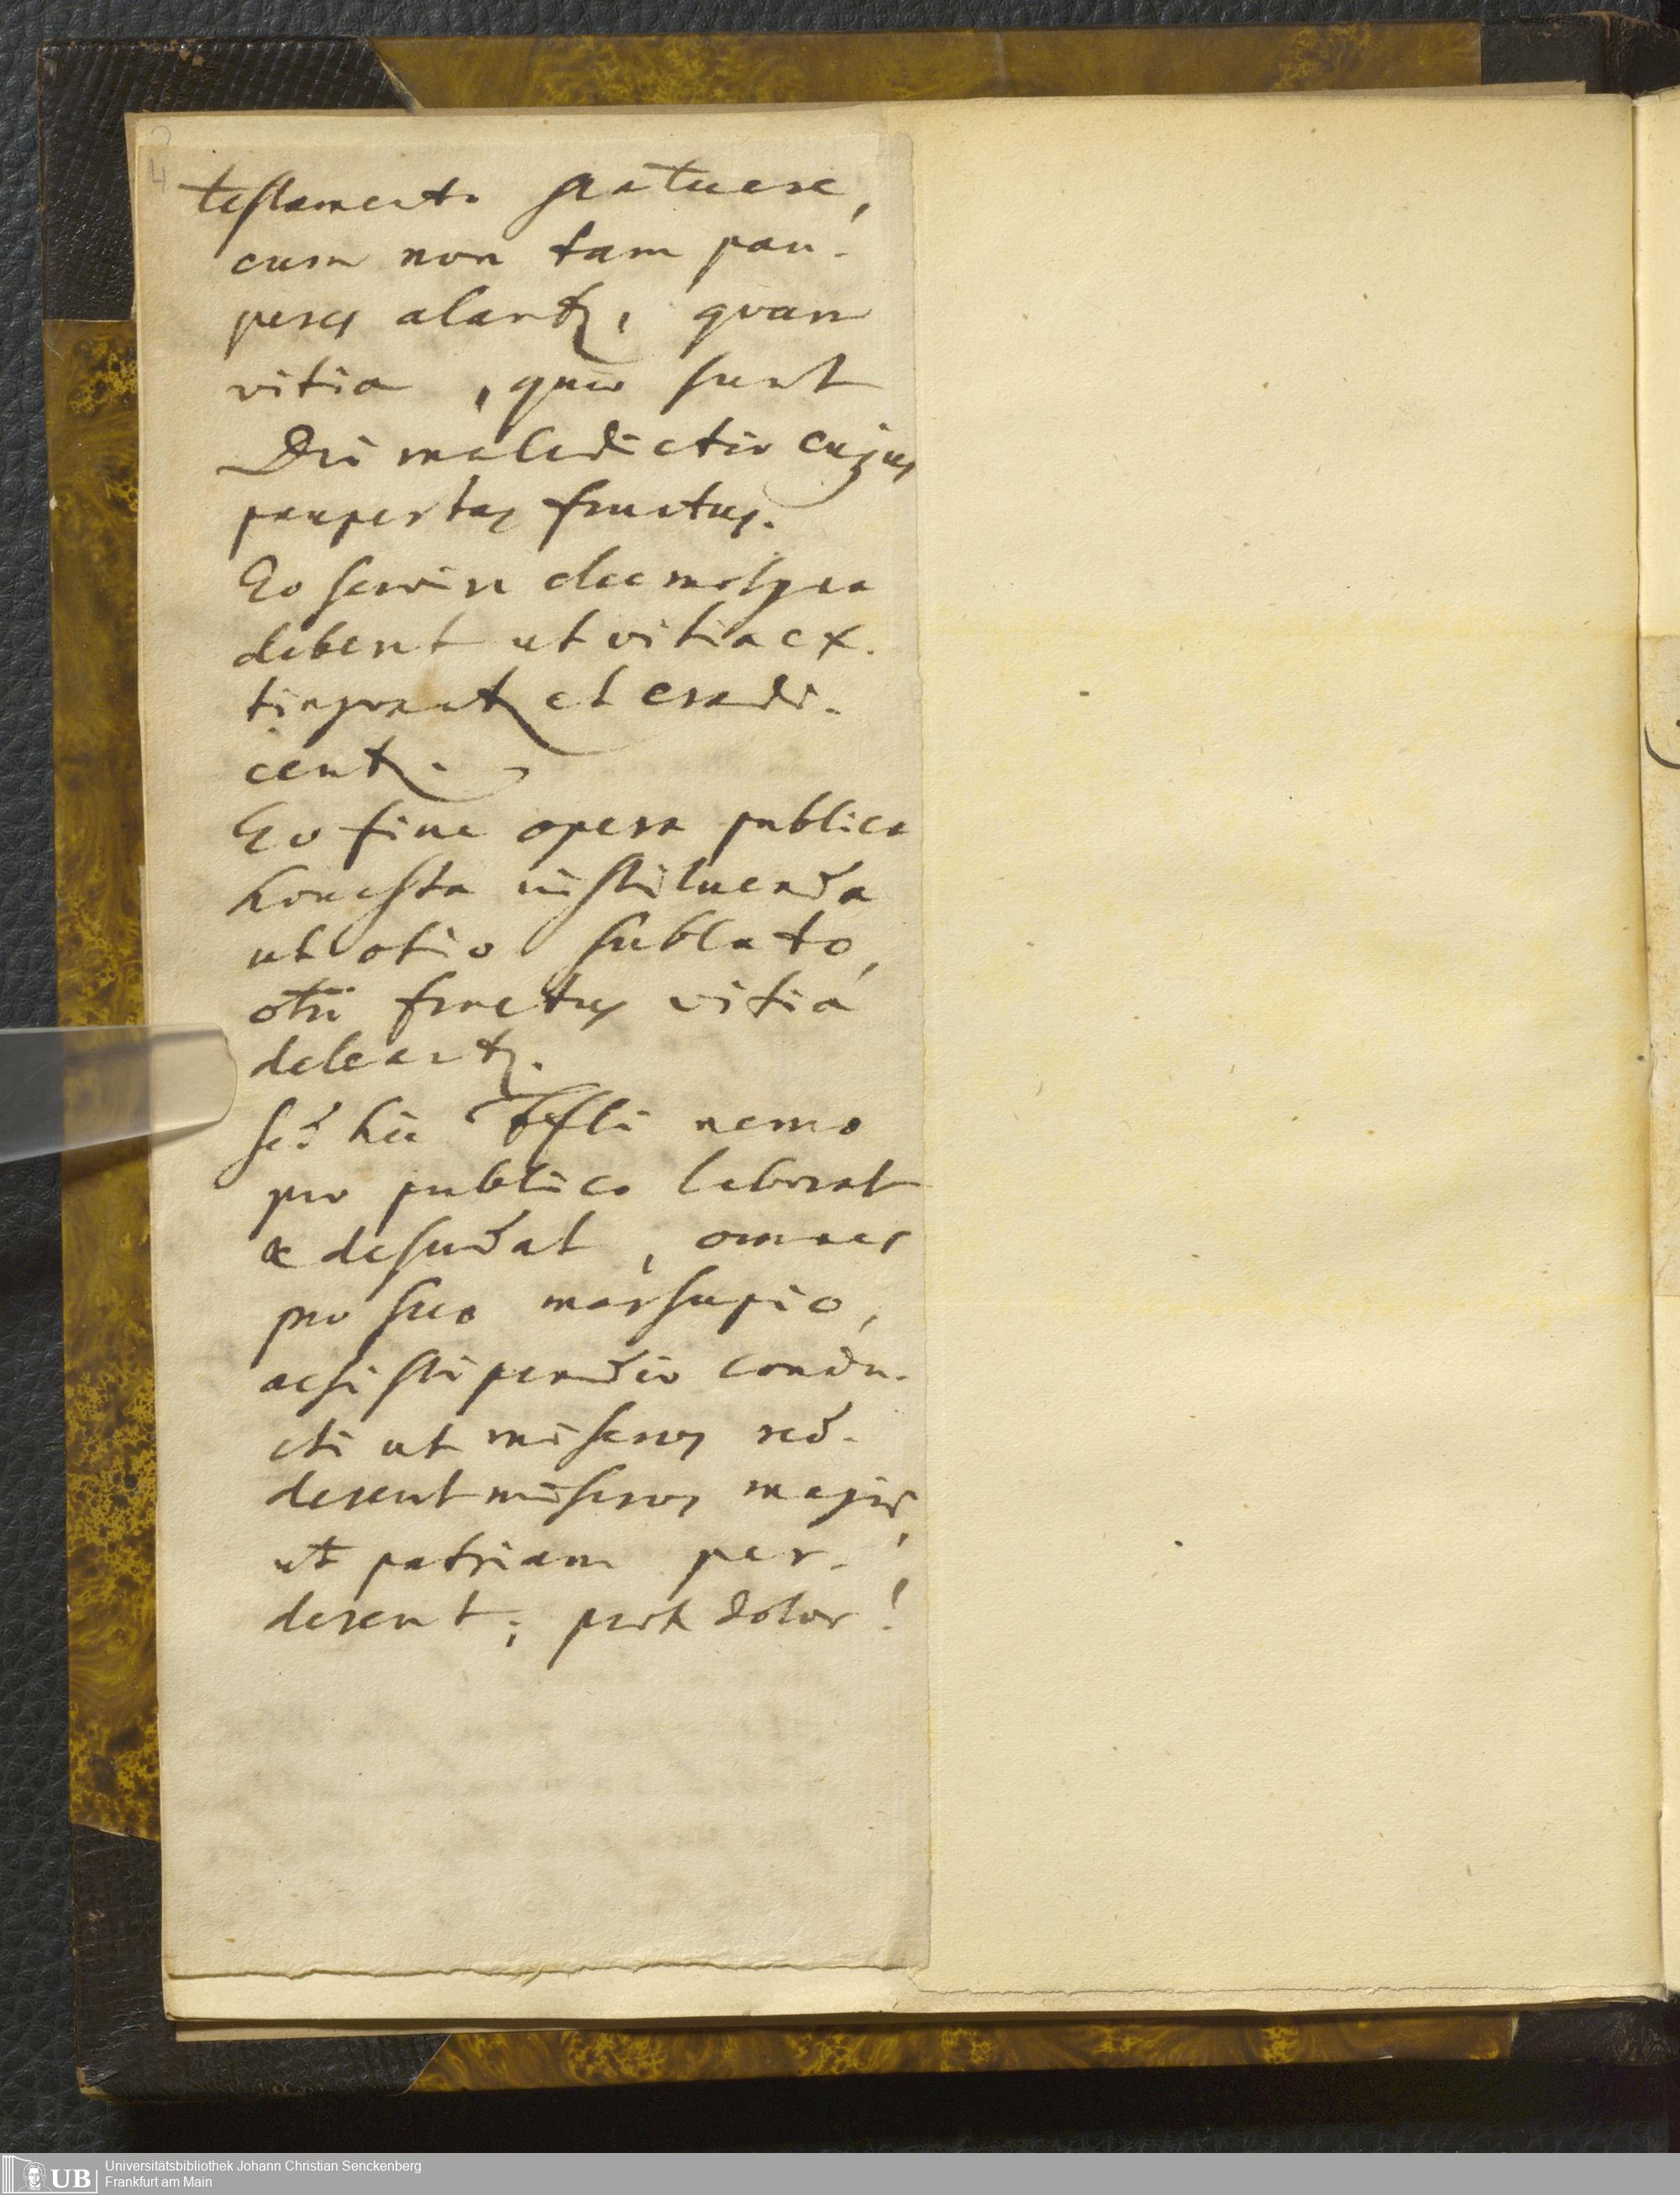 4
testamento statuere,
cum non tam pau-
peres alantr, quam
vitia, quae sunt
Dei maledictio cujus
paupertas fructus.
Eo servire eleemosynae
debent ut vitia ex-
tingvantr et eradi-
centr.
Eo fine opera publica
honesta instituenda
ut otio sublato,
otii fructus vitia
deleantr.
Sed hic Fffti nemo
pro publico laborat
ac desudat, omnes
pro suo marsupio,
acsi stipendio condu-
cti ut miseros red-
derent miseros magis,
ut patriam per-
derent; proh dolor!
UB Universitätsbibliothek Johann Christian Senckenberg
Frankfurt am Main